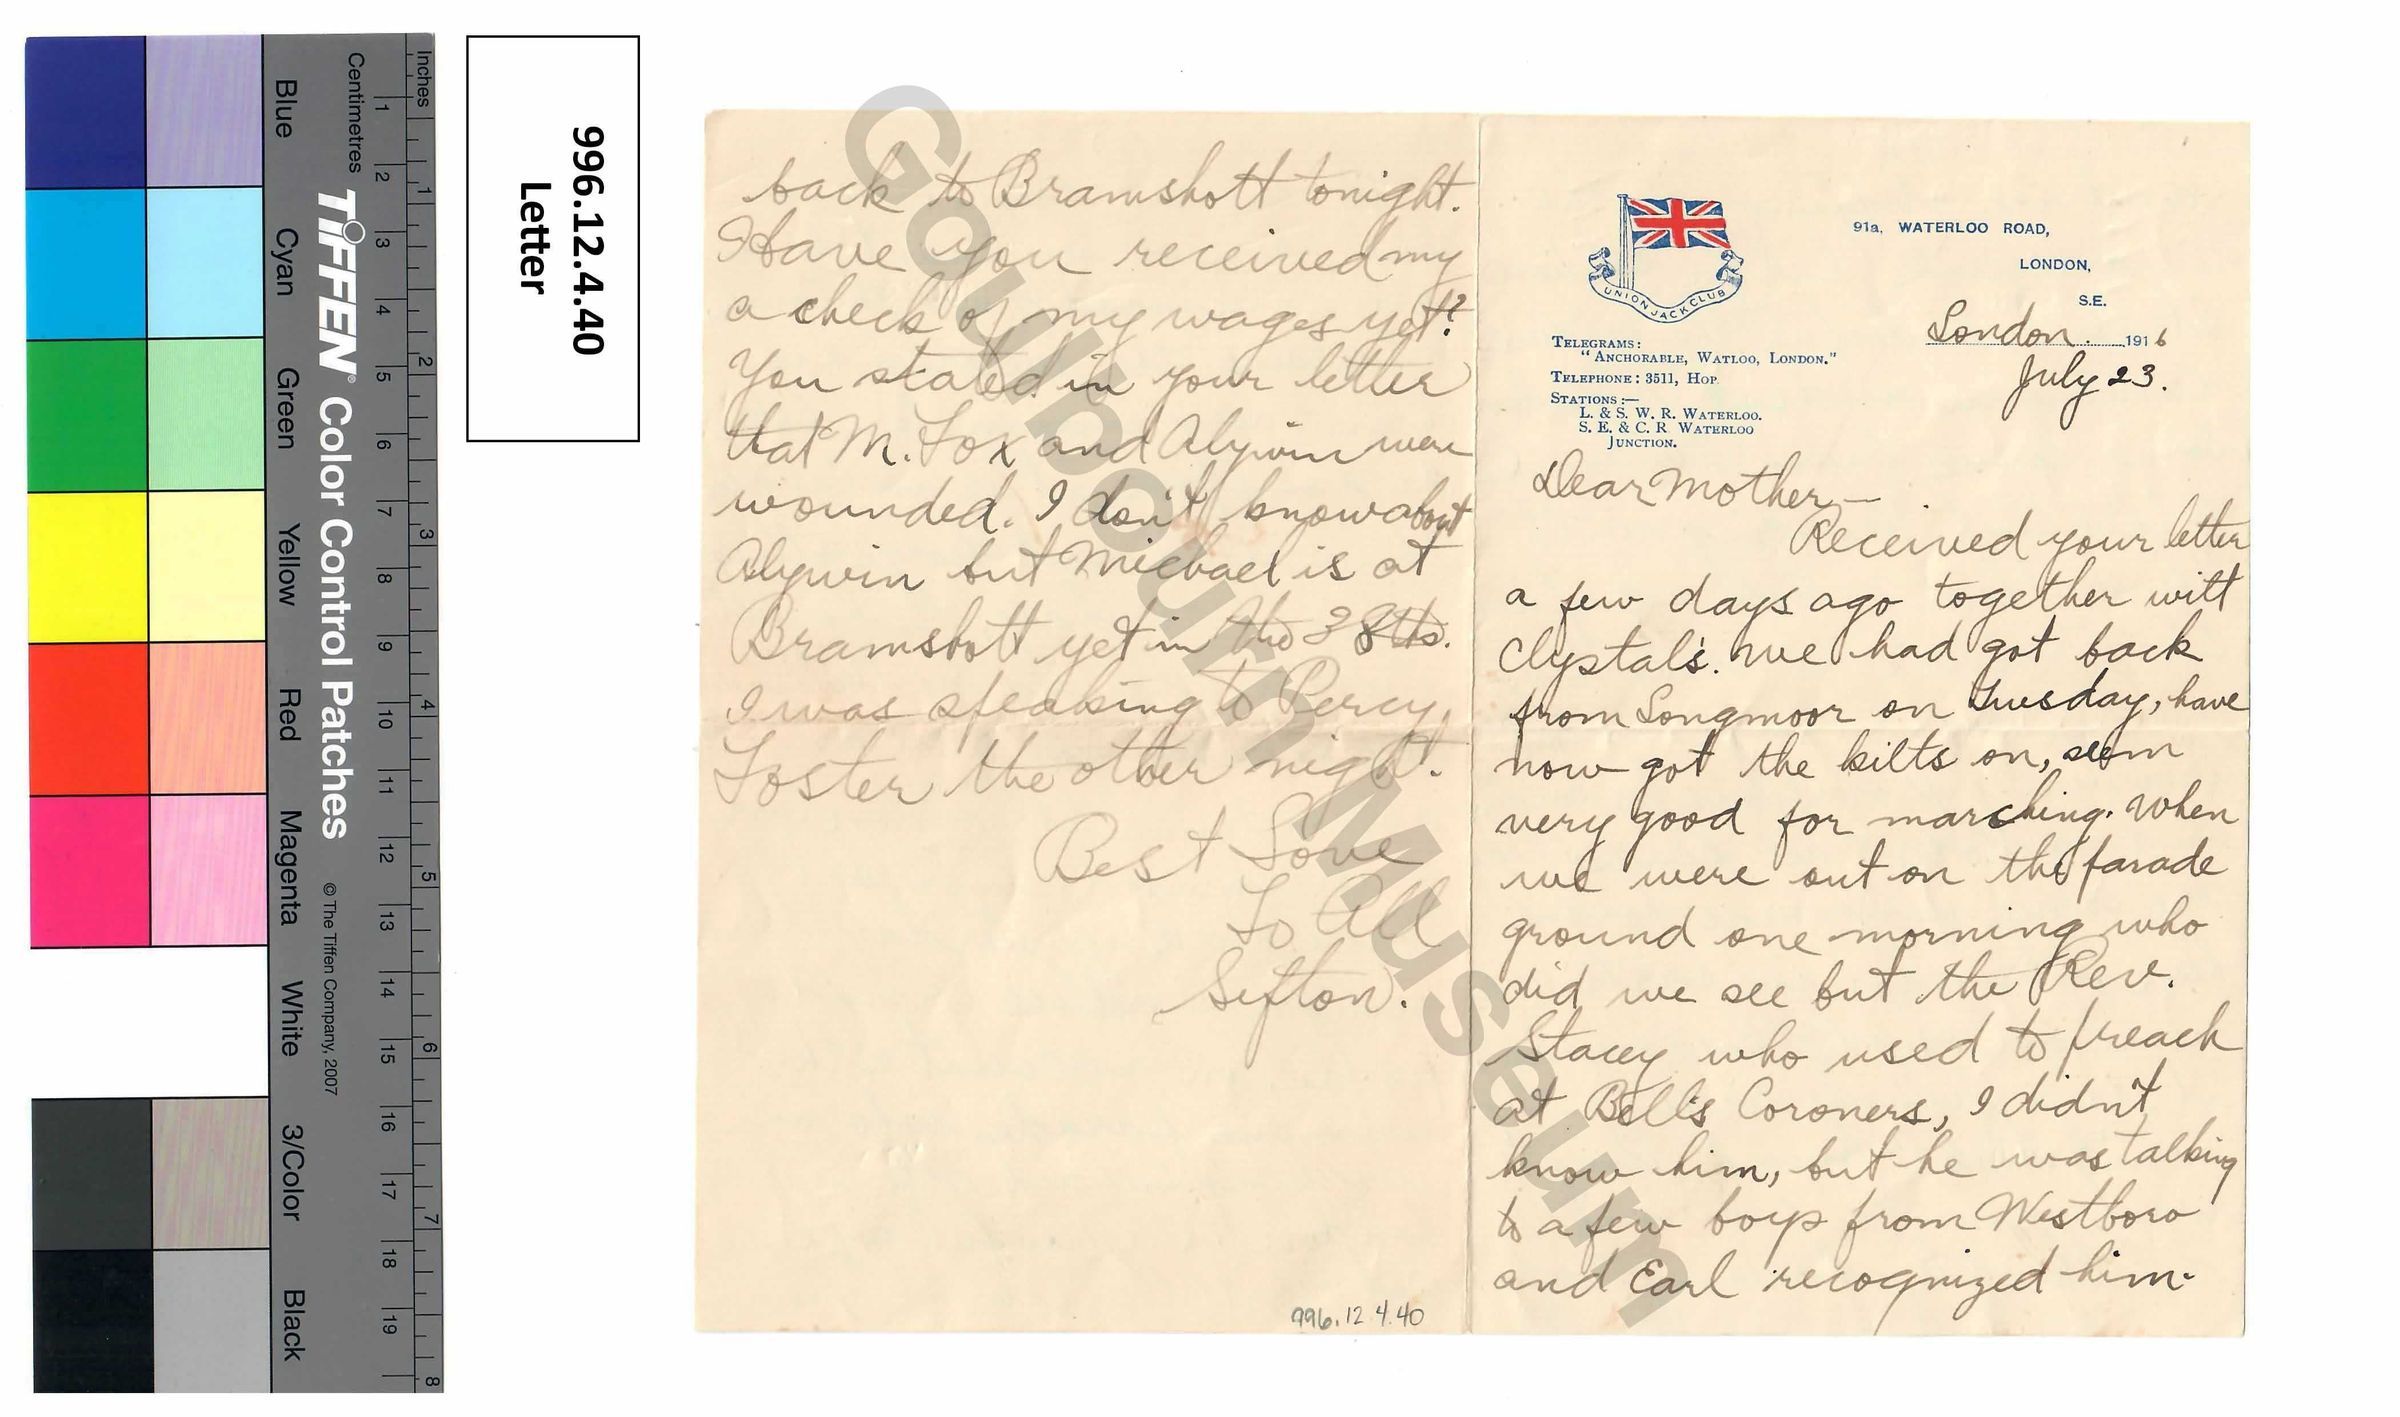 Blue
Cyan
Green
Yellow
Red
Magenta
White
3/Color
Black
Centimetres
Inches
1
2
3
4
5
6
7
8
9
10
11
12
13
14
15
16
17
18
19
1
2
3
4
5
6
7
8
TIFFEN® Color Control Patches
© The Tiffen Company, 2007
996.12.4.40
Letter
back to Bramshott tonight.
Have you received my
a check of my wages yet?
You stated in your letter
that M. Fox and Alywin were
wounded. I don't know about
Alywin but Michael is at
Bramshott yet in the 38th.
I was speaking to Percy
Foster the other night.
Best Love
To All
Sifton.
996.12.4.40
UNION JACK CLUB
91a, WATERLOO ROAD,
LONDON,
S.E.
London. 1916
July 23.
TELEGRAMS:
"ANCHORABLE, WATLOO, LONDON."
TELEPHONE: 3511, HOP
STATIONS:—
L. & S. W. R. WATERLOO.
S. E. & C. R WATERLOO
JUNCTION.
Dear Mother—
Received your letter
a few days ago together witt
Clystal's. We had got back
from Longmoor on Tuesday, have
now got the kilts on, seem
very good for marching. When
we were out on the parade
ground one morning who
did we see but the Rev.
Stacey who used to preach
at Bell's Coroners, I didn't
know him, but he was talking
to a few boys from Westboro
and Earl recognized him.
Goulbourn Museum